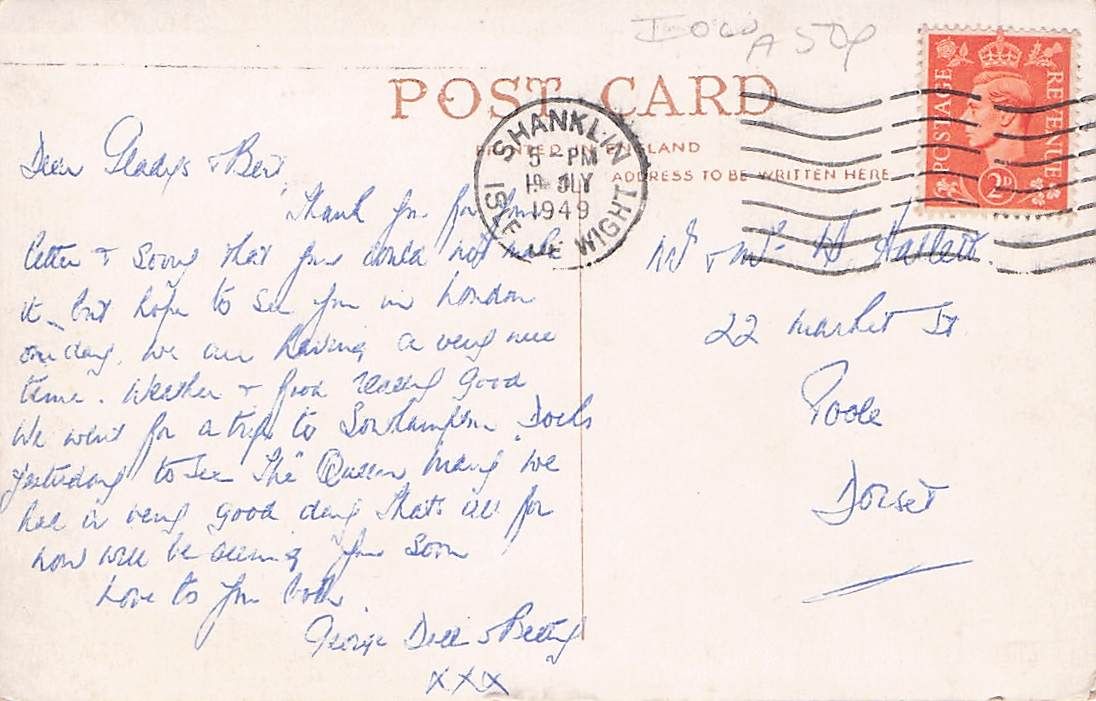 IOW
A 50p
POST CARD
PRINTED IN ENGLAND
ADDRESS TO BE WRITTEN HERE
SHANKLIN
5 - PM
19 JLY
1949
ISLE OF WIGHT
POSTAGE
REVENUE
2D
Dear Gladys & Bert,
Thank you for your
letter & Sorry that you could not make
it, but hope to see you in London
one day. We are having a very nice
time. Weather & food really good
We went for a trip to Southampton Docks
yesterday to see "The Queen Mary" we
had a very good day thats all for
now will be seeing you soon
Love to you both
George & Betty
xxx
Mr & Mrs H
22 Market St
Poole
Dorset